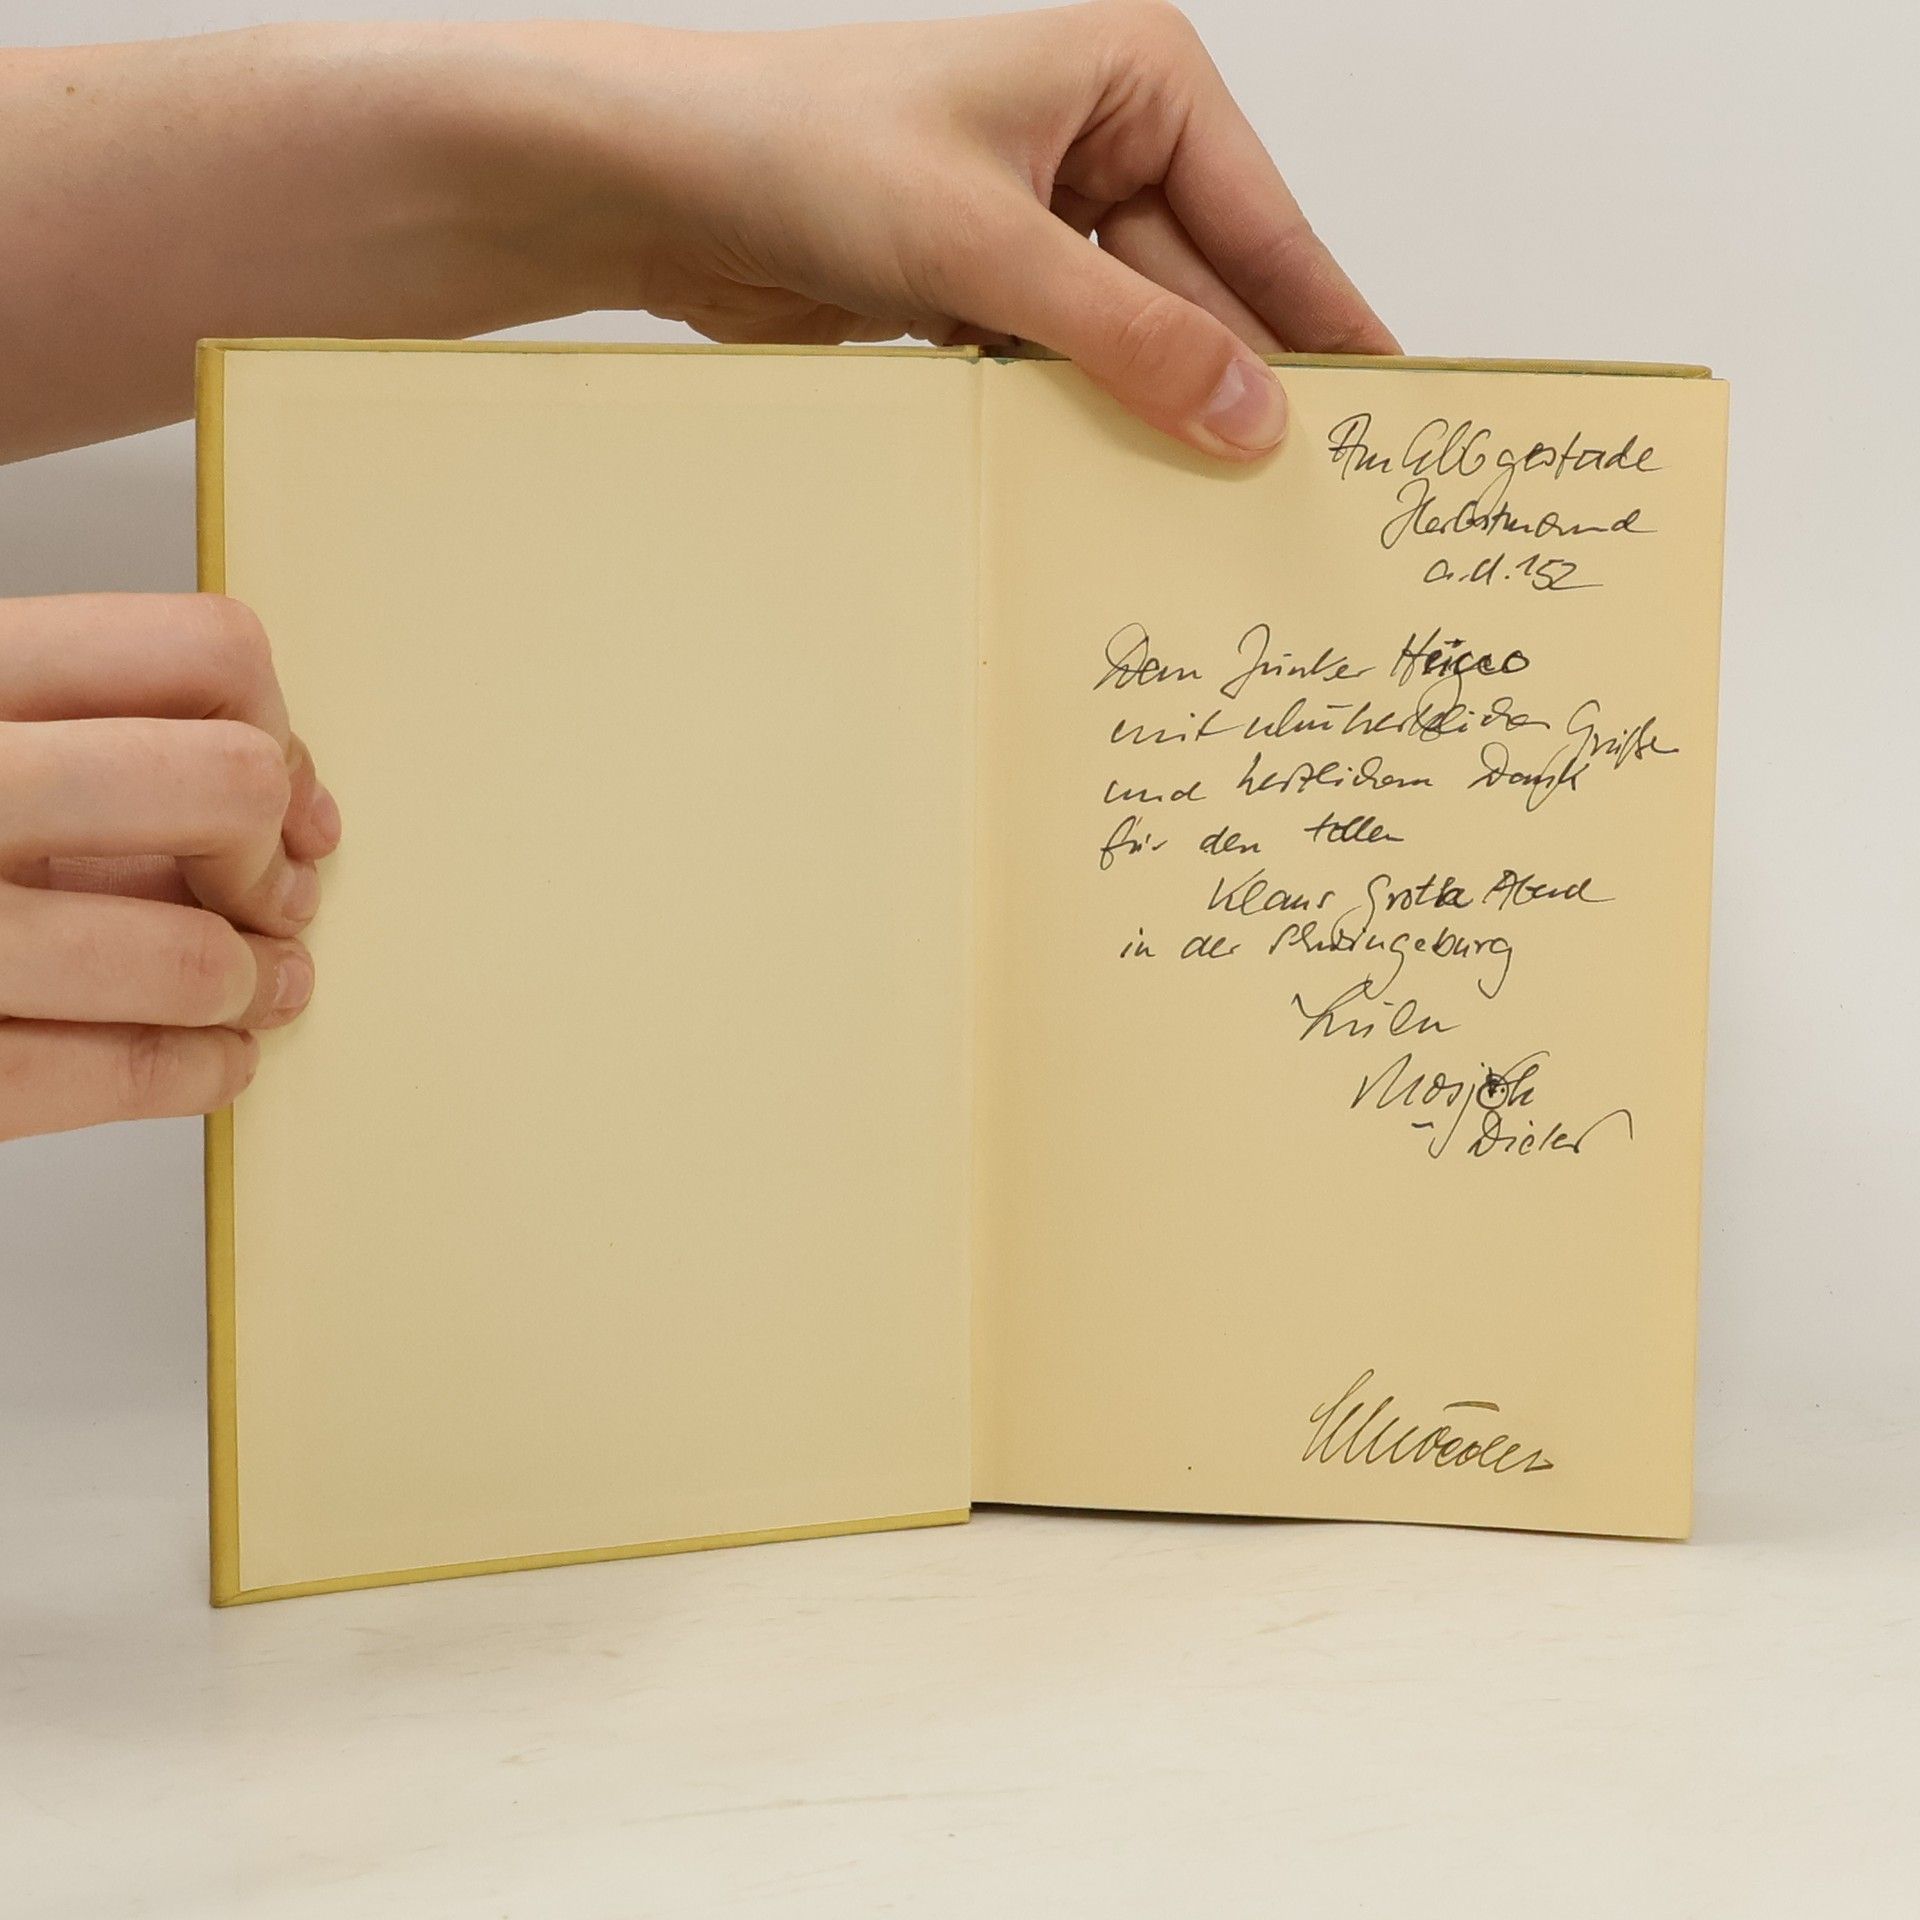 Am Elbgestade
Herbstmond
a.U. 152
Dem Junker Hugo
mit uhuherzlichen Grüßen
und herzlichem Dank
für den tollen
Klaus Groth Abend
in der Schwingeburg
Lulu
Dieter
Schröder